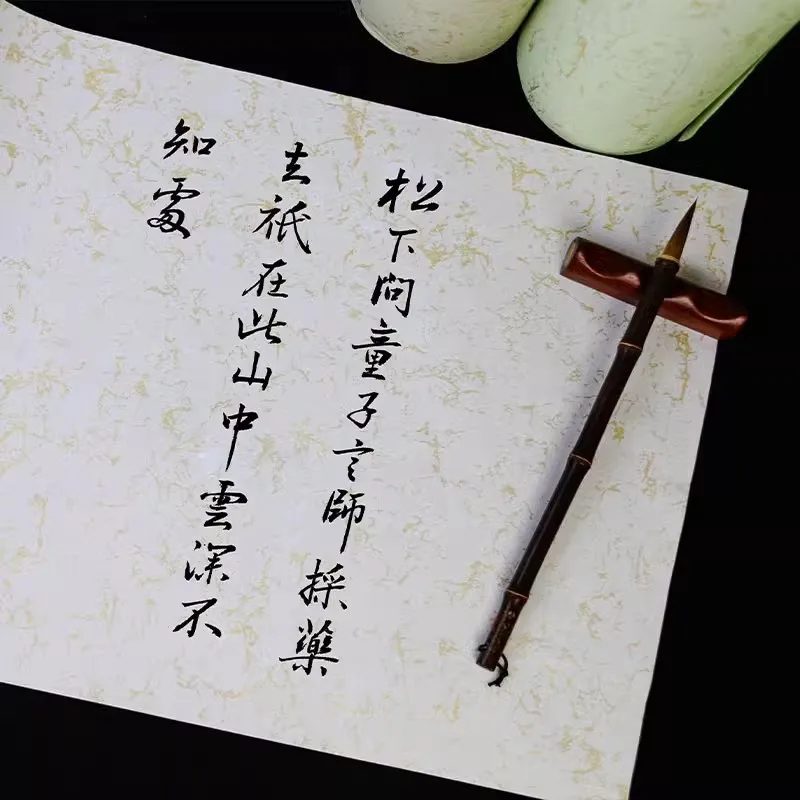 松下問童子言師採藥
去祇在此山中雲深不
知處